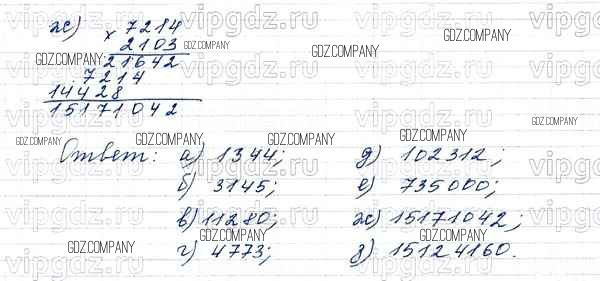 ж) 7214
× 2103
21642
7214
14428
15171042
Ответ: а) 1344; д) 102312;
б) 3145; е) 735000;
в) 11280; ж) 15171042;
г) 4773; з) 15124160.
vipgdz.ru
GDZ.COMPANY